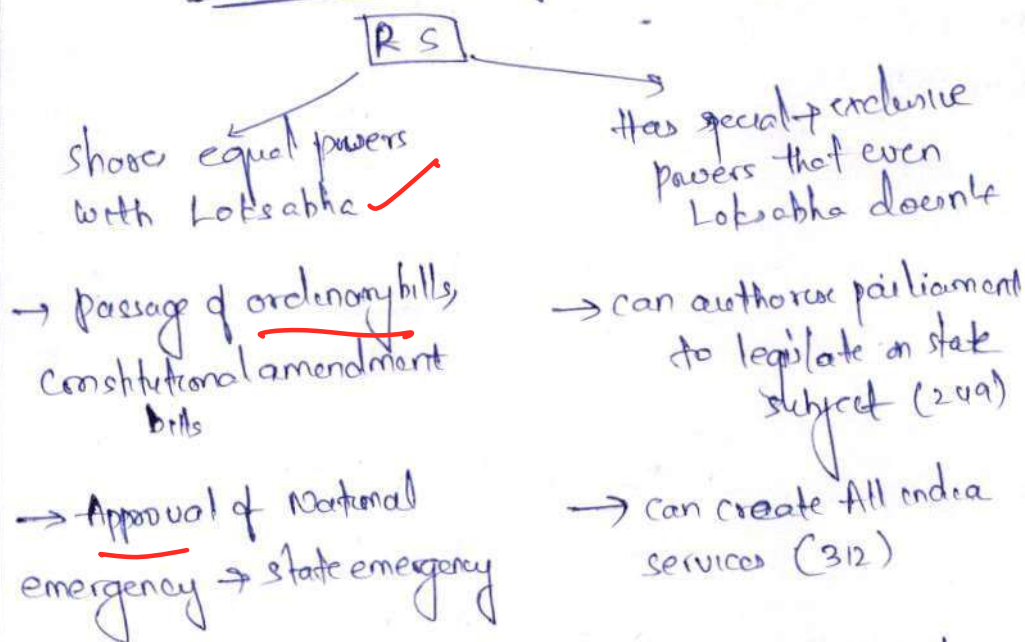 R S
share equal powers
with Loksabha
→ Passage of ordenary bills,
constitutional amendment
bills
→ Approval of National
emergency → state emergency
Has special + exclusive
powers that even
Loksabha doesn't
→ can authorise pailiament
to legislate on state
subject (249)
→ can create All india
services (312)